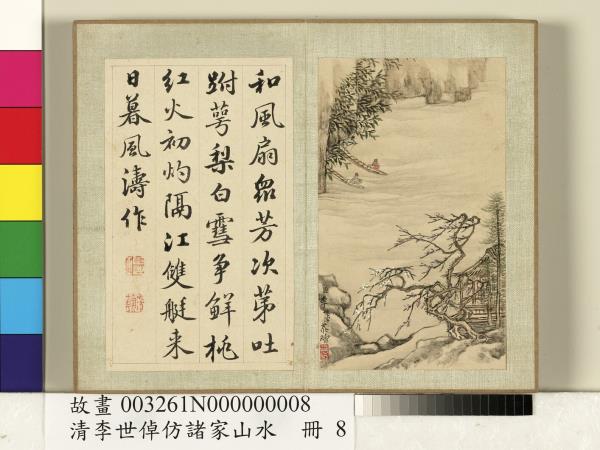 和風扇眾芳次第吐
跗萼梨白雪争鮮桃
紅火初灼隔江雙艇来
日暮風濤作
故畫 003261N000000008
清李世倬仿諸家山水 冊 8